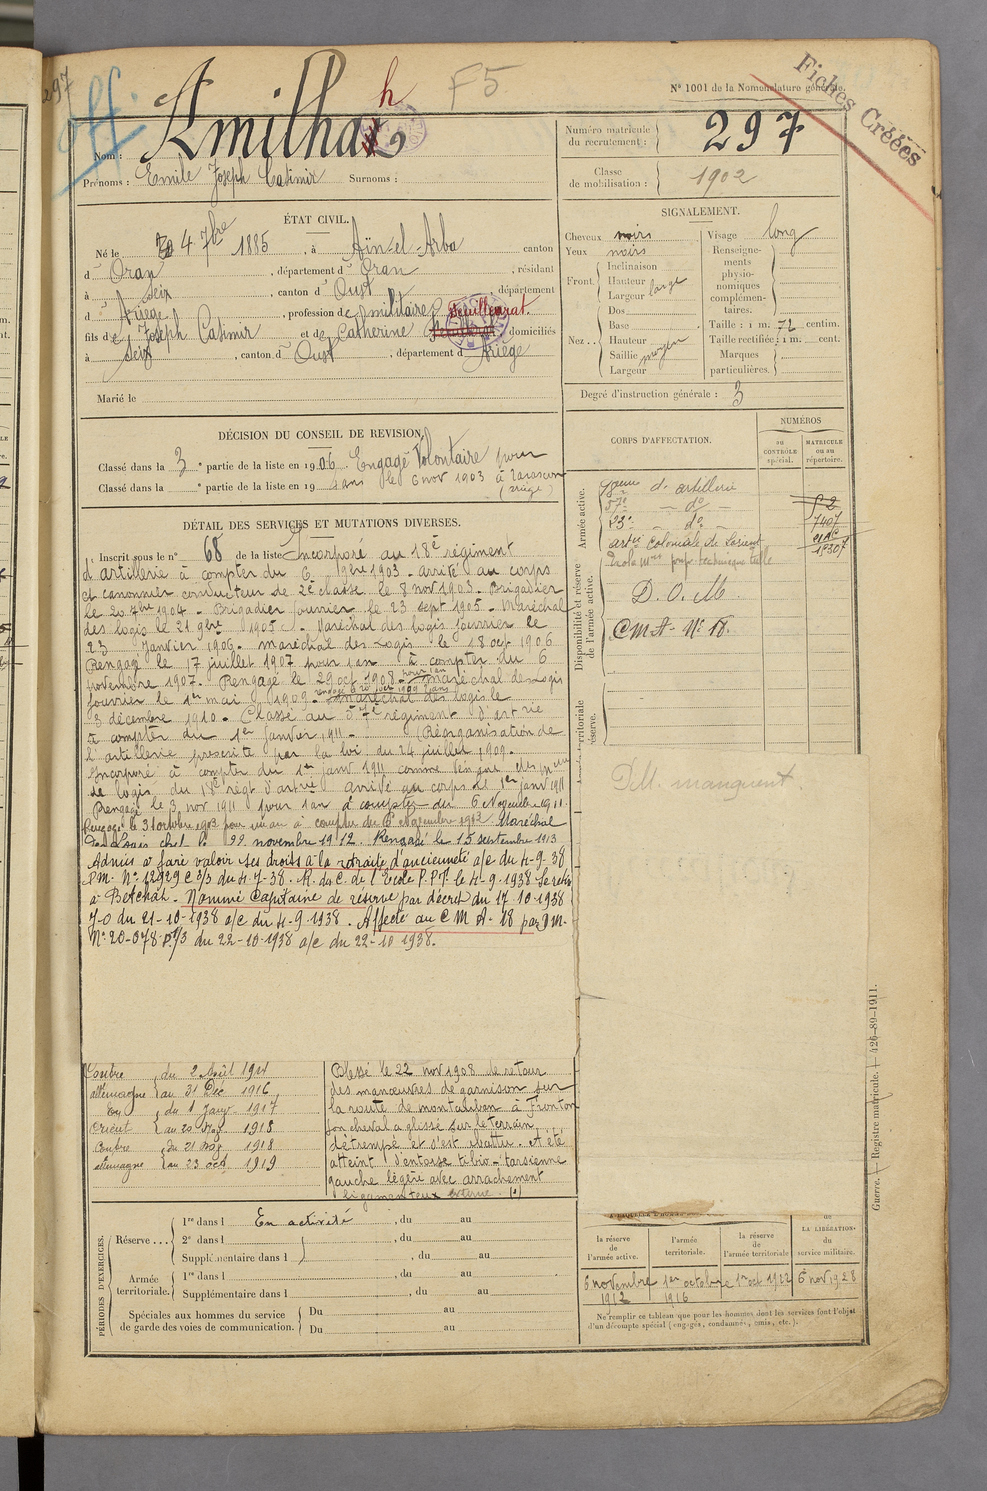 297
off.
F5
h
N° 1001 de la Nomenclature générale.
Fiches Créées
Nom : Amilhat
Prénoms : Emile Joseph Casimir Surnoms :
Numéro matricule du recrutement : 297
Classe de mobilisation : 1902
ÉTAT CIVIL.
Né le 4 7bre 1885, à Aïn-el-Arba canton
d' Oran, département d' Oran, résidant
à Seix, canton d' Oust, département
d' Ariège, profession de militaire
fils de Joseph Casimir et de Catherine Feuillerat. domiciliés
à Seix, canton d' Oust, département d' Ariège
Marié le
SIGNALEMENT.
Cheveux noirs
Yeux noirs
Front. Inclinaison
Hauteur
Largeur large
Nez. Dos
Base
Hauteur
Saillie moyen
Largeur
Visage long
Renseignements physionomiques complémentaires.
Taille : 1 m. 72 centim.
Taille rectifiée : 1 m. cent.
Marques particulières.
Degré d'instruction générale : 3
DÉCISION DU CONSEIL DE REVISION.
Classé dans la 3e partie de la liste en 1906. Engagé Volontaire pour
Classé dans la e partie de la liste en 19 ans le 6 nov 1903 à Tarascon
(Ariège)
CORPS D'AFFECTATION.
NUMÉROS
au CONTRÔLE spécial.
MATRICULE ou au répertoire.
Armée active.
d'artillerie
57e do
23e do 7407
artie Coloniale de Lorient 18307
Disponibilité et réserve de l'armée active.
D. O. M.
CMA. N° 18.
DM. manquent
DÉTAIL DES SERVICES ET MUTATIONS DIVERSES.
Inscrit sous le n° 68 de la liste Incorporé au 18e régiment
d'artillerie à compter du 6 9bre 1903. arrivé au corps
et canonnier conducteur de 2e classe le 8 nov 1903. Brigadier
le 20 7bre 1904. Brigadier fourrier le 23 sept 1905. Maréchal
des logis le 21 9bre 1905. Maréchal des logis fourrier le
23 janvier 1906. maréchal des Logis le 18 oct 1906
Rengagé le 17 juillet 1907 pour 1 an à compter du 6
novembre 1907. Rengagé le 29 oct 1908 pour 1 an maréchal des Logis
fourrier le 1er mai 1909. maréchal des logis le
3 décembre 1910. Classé au régiment d'artrie
à compter du 1er Janvier 1911. (Réorganisation de
l'artillerie prescrite par la loi du 24 juillet 1909.
Incorporé à compter du 1er janv 1911 comme
de logis, du 18e régt d'artrie arrivé au corps le 1er janv 1911
Rengagé le 3 nov 1911 pour 1 an à compter du 6 Novembre 1911.
Rengagé le 31 octobre pour un an à compter du 6 Novembre Maréchal
des logis chef le 22 novembre 1912. Rengagé le 15 septembre 1913
Admis à faire valoir ses droits à la retraite d'ancienneté a/c du 4-9-38
DM. N° 12929 C 3/3 du 4-7-38. R. du C. de l'Ecole P.P.T. le 4-9-1938 Se retire
à Betchat. Nommé Capitaine de réserve par décret du 17-10-1938
J-O du 21-10-1938 a/c du 4-9-1938. Affecté au C M A. 18 par DM.
N° 20-078 /3 du 22-10-1938 a/c du 22-10 1938.
Contre allemagne du 2 Août 1914 au 31 Déc 1916
En Orient du 1 Janv. 1917 au 20 1918
Contre allemagne du 21 1918 au 23 oct 1919
Blessé le 22 nov 1908 de retour
des manœuvres de garnison sur
la route de montauban à Fronton
son cheval a glissé sur le terrain
détrempé et s'est abattu. A été
atteint d'entorse tibio-tarsienne
gauche légère avec arrachement
ligamenteux externe.
PÉRIODES D'EXERCICES.
Réserve... 1re dans l En activité, du au
2e dans l, du au
Supplémentaire dans l, du au
Armée territoriale. 1re dans l, du au
Supplémentaire dans l, du au
Spéciales aux hommes du service de garde des voies de communication. Du au
Du au
la réserve de l'armée active.
l'armée territoriale.
la réserve de l'armée territoriale
LA LIBÉRATION du service militaire.
6 novembre 1912
1er octobre 1916
1er oct 1922
6 nov 1928
Ne remplir ce tableau que pour les hommes dont les services font l'objet
d'un décompte spécial (engagés, condamnés, omis, etc.).
Guerre. — Registre matricule. — 426-89-1911.